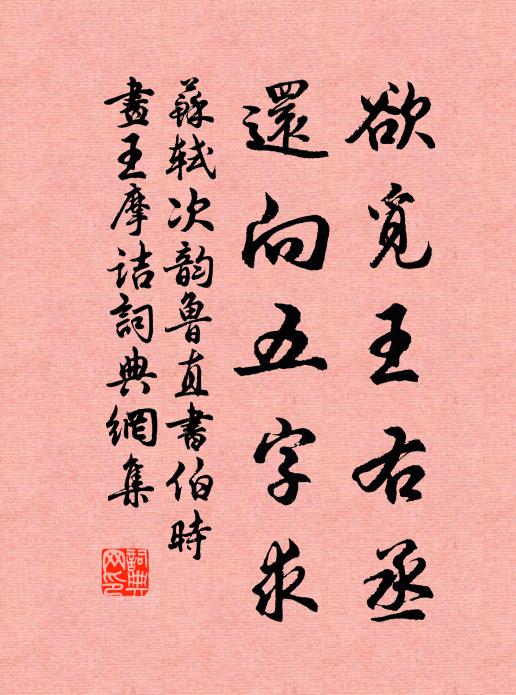 欲覓王右丞
還向五字求
蘇軾次韵魯直書伯時
畫王摩詰詞典網集
詞典網印